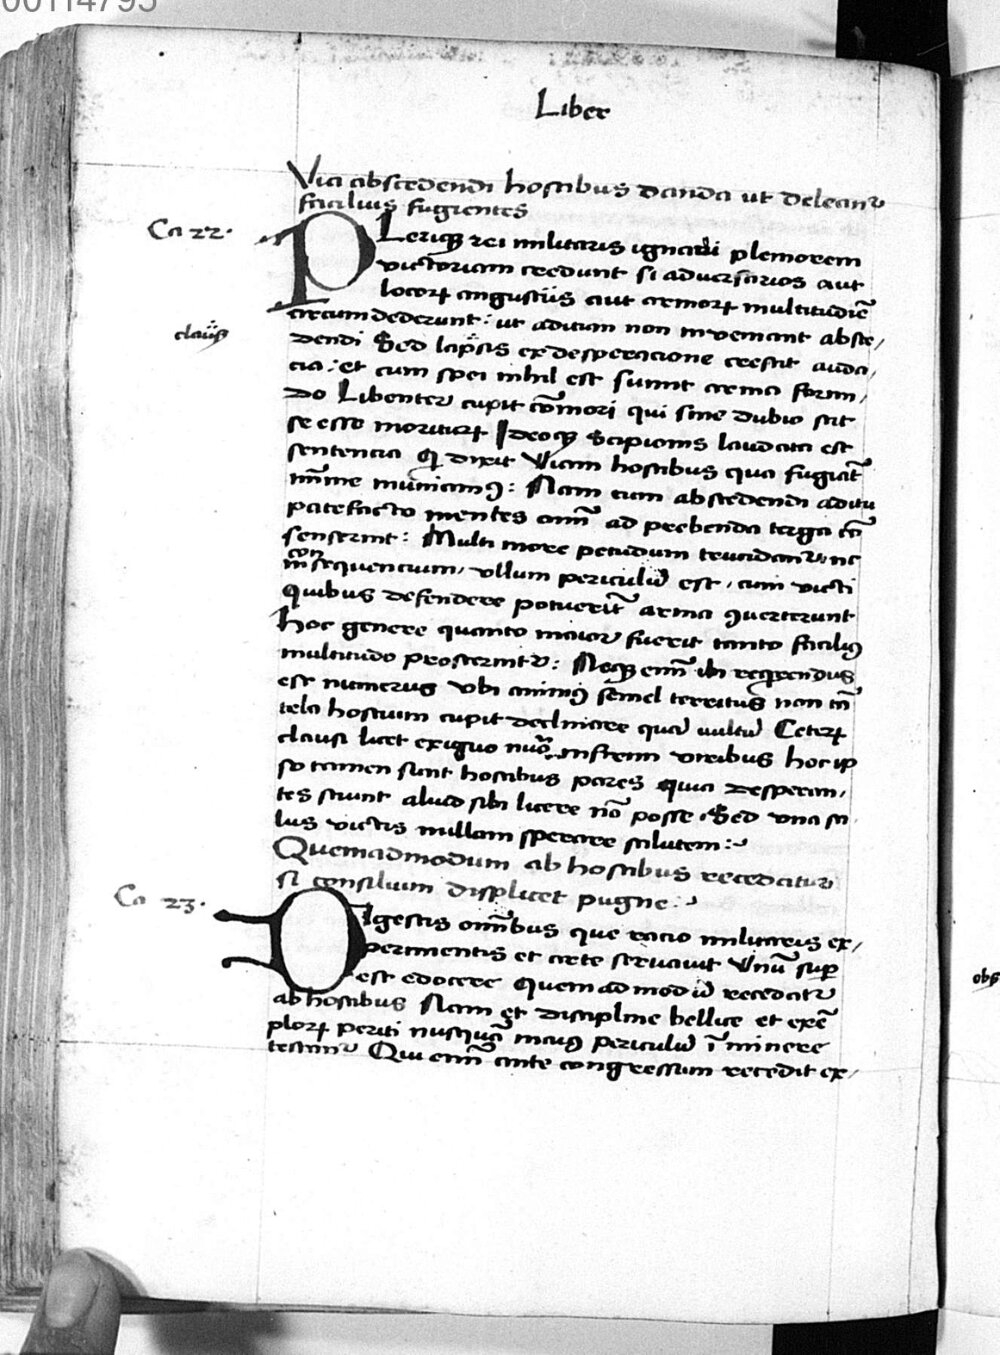 00114795
Liber
Via abscedendi hostibus danda ut deleant᷑
facilius fugientes
Ca 22.
PLeriqꝫ rei militaris ignari plemorem
victoriam credunt si aduersarios aut
locoꝝ angustiis aut armoꝝ multitudiē
circumdederunt: ut aditum non inveniant absce/
clausis
dendi Sed lapsis ex desperacione crescit auda/
cia: et cum spei nihil est sumit arma formi/
do Libenter cupit cōmori qui sine dubio scit
se esse morituꝝ Ideoqꝫ Scipionis laudata est
sentencia qͥ dixit Viam hostibus qua fugiāt
minīe muniamꝰ: Nam cum abscedendi aditu
patefacto mentes omīu ad prebenda terga cō
senserint: Multi more pecudum trucidant᷑ ne
con
insequencium/ ullum periculū est/ cum victi
Quibus defendere potuerīt arma ꝯuerterunt
Hoc genere quanto maior fuerit tanto faciliꝰ
multitudo prosternit᷑: Neqꝫ enī ibi reqrendus
est numerus Vbi animꝰ semel territus non tā
tela hostium cupit declinare quā uultū Ceteꝝ
clausi licet exiguo nūo infirm viribus hoc ip
so tamen sunt hostibus pares Quia desperan/
tes sciunt aliud sibi licere nō posse. Sed una sa
lus victis nullam sperare salutem:
Quemadmodum ab hostibus recedatur
si consilium displicet pugne:
Ca 23.
DIgestis omībus que racio militaris ex/
perimentis et arte seruauit Vnū sup̄
est edocere Quemadmodū recedat᷑
ab hostibus Nam et discipline bellice et exē
ploꝝ periti nusquā maiꝰ periculū īminere
testant᷑ Qui enī ante congressum recedit ex/